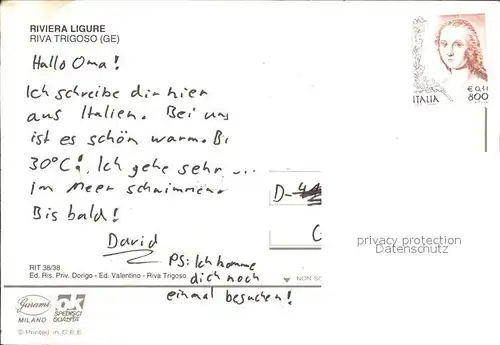 RIVIERA LIGURE
RIVA TRIGOSO (GE)
Hallo Oma!
Ich schreibe dir hier
aus Italien. Bei uns
ist es schön warm. Bi
30°C! Ich gehe sehr ...
im Meer schwimmen
Bis bald!
David
PS: Ich komme
dich noch
einmal besuchen!
ITALIA
€ 0,41
800
D-
privacy protection
overlay
RIT 38/38
Ed. Ris. Priv. Dorigo - Ed. Valentino - Riva Trigoso
NON SC
Garami
MILANO
SPEDISCI
QUALITÀ
© Printed in C.E.E.